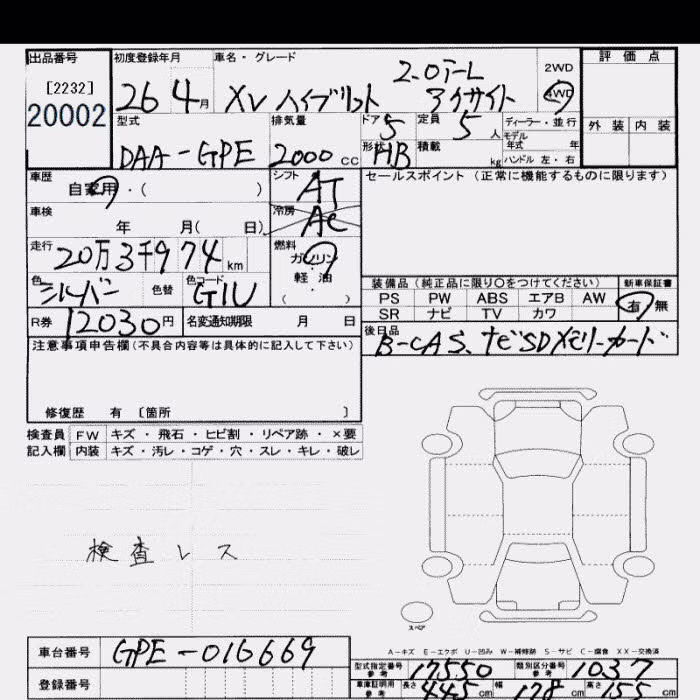 出品番号
[2232]
20002
初度登録年月
26 4月
車名・グレード
2.0i-L
XV ハイブリット アクサイト
2WD
4WD
評価点
外装 内装
型式
DAA-GPE
排気量
2000 cc
ドア 5
定員 5 人
ディーラー・並行
モデル年式 年
形状 HB
積載 kg
ハンドル 左・右
車歴
自家用・( )
シフト AT
セールスポイント(正常に機能するものに限ります)
車検
年 月( 日)
冷房 AC
走行
20万3千974 km
燃料
ガソリン
軽・油
( )
色
シルバー
色替
色コード
G1U
装備品(純正品に限り○をつけてください)
新車保証書
PS PW ABS エアB AW
SR ナビ TV カワ
有・無
R券 12030円
名変通知期限 月 日
後日品
B-CAS、ナビSDメモリーカード
注意事項申告欄(不具合内容等は具体的に記入して下さい)
修復歴 有 [箇所 ]
検査員 FW キズ・飛石・ヒビ割・リペア跡・×要
記入欄 内装 キズ・汚レ・コゲ・穴・スレ・キレ・破レ
検査レス
スペア
A-キズ E-エクボ U-凹み W-補修跡 S-サビ C-腐食 XX-交換済
車台番号 GPE-016669
型式指定番号 参考 17550
類別区分番号 参考 1037
登録番号
車庫証明用 参考 長さ 445 cm 幅 178 cm 高さ 155 cm